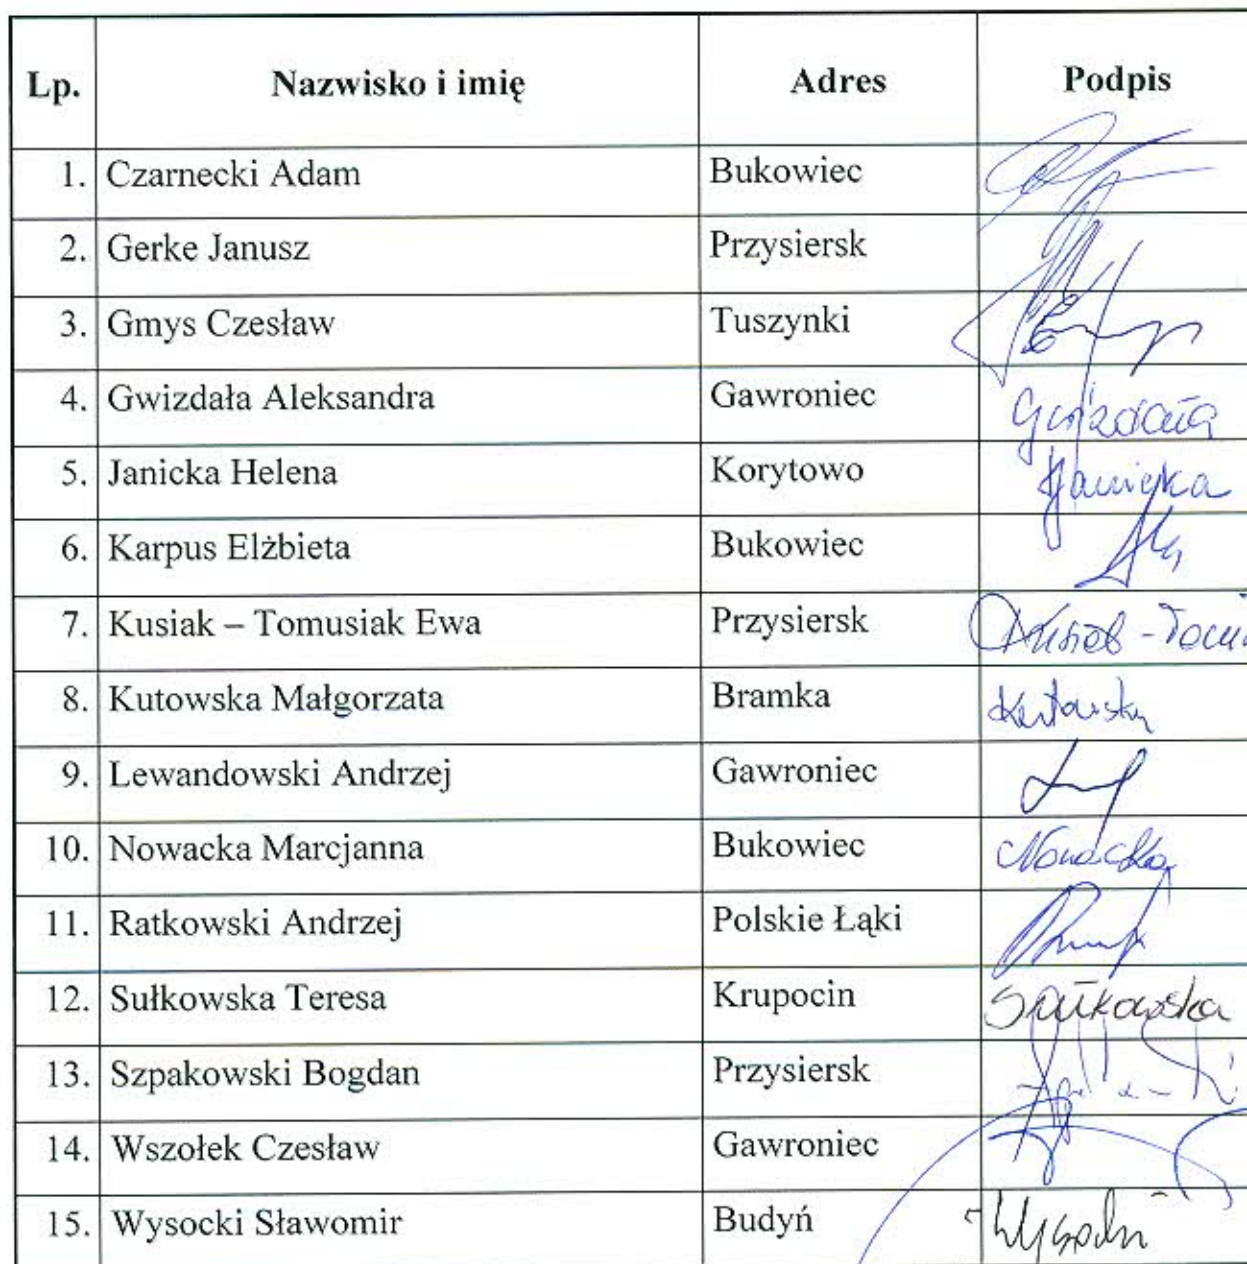 Lp. Nazwisko i imię Adres Podpis
1. Czarnecki Adam Bukowiec
2. Gerke Janusz Przysiersk
3. Gmys Czesław Tuszynki
4. Gwizdała Aleksandra Gawroniec Gwizdała
5. Janicka Helena Korytowo HJanicka
6. Karpus Elżbieta Bukowiec
7. Kusiak – Tomusiak Ewa Przysiersk
8. Kutowska Małgorzata Bramka Kutowska
9. Lewandowski Andrzej Gawroniec
10. Nowacka Marcjanna Bukowiec Nowacka
11. Ratkowski Andrzej Polskie Łąki
12. Sułkowska Teresa Krupocin Sułkowska
13. Szpakowski Bogdan Przysiersk
14. Wszołek Czesław Gawroniec
15. Wysocki Sławomir Budyń Wysocki